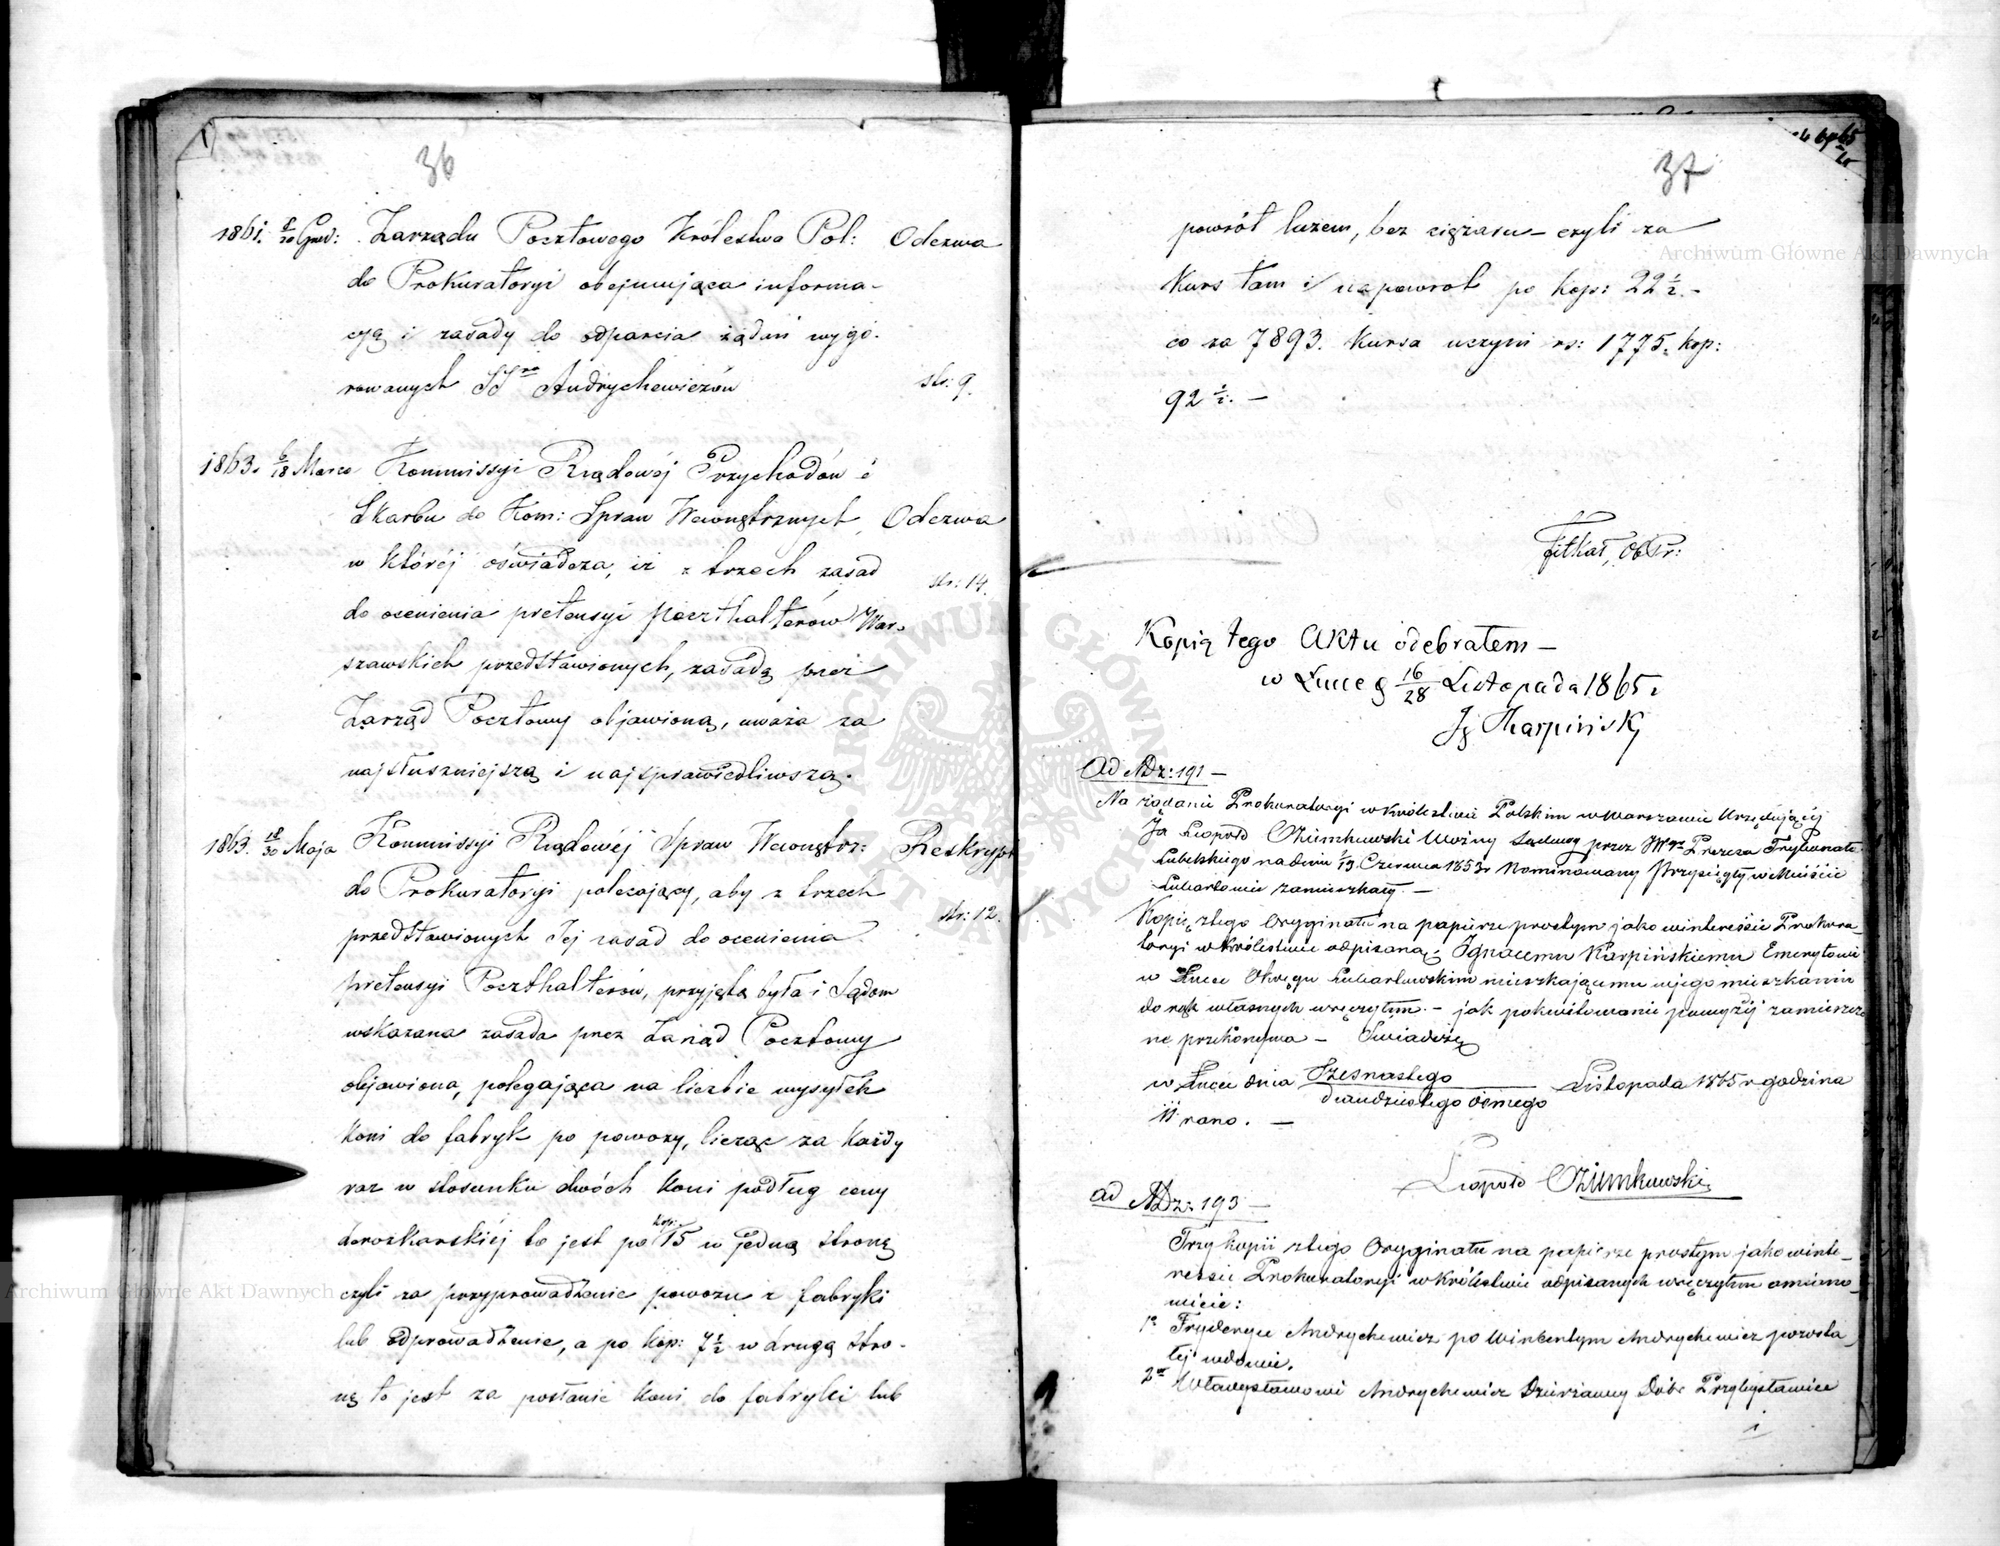 36
1861. 8/20 Grud: Zarządu Pocztowego Królestwa Pol: Odezwa
do Prokuratoryi obejmująca informa-
cyą i zasady do odparcia żądań wygó-
rowanych SSrów Andrychewiczów str: 9.
1863. 6/18 Marca Kommissyi Rządowéj Przychodów i
Skarbu do Kom: Spraw Wewnętrznych Odezwa
w któréj oświadcza, iż z trzech zasad str: 14.
do ocenienia pretensyi Poczthalterów War-
szawskich przedstawionych, zasadę przez
Zarząd Pocztowy objawioną, uważa za
najsłuszniejszą i najsprawiedliwszą.
1863. 18/30 Maja Kommissyi Rządowéj Spraw Wewnętrz: Reskrypt
do Prokuratoryi polecający, aby z trzech
przedstawionych Jej zasad do ocenienia str: 12.
pretensyi Poczthalterów, przyjętą była i Sądom
wskazana zasada przez Zarząd Pocztowy
objawiona, polegająca na liczbie wysyłek
koni do fabryk po powozy, licząc za każdy
raz w stosunku dwóch koni podług ceny
dorożkarskiéj to jest po kop: 15 w jedną stronę
czyli za przyprowadzenie powozu z fabryki
lub odprowadzenie, a po kop: 7 1/2 w drugą stro-
nę to jest za posłanie koni do fabryki lub
37
powrót luzem, bez ciężaru – czyli za
kurs tam i napowrót po kop: 22 1/2. –
co za 7893. kursa uczyni rs: 1775. kop:
92 1/2. –
Kopią tego Aktu odebrałem –
w Łucce 16/28 Listopada 1865 r
Ig Karpiński
Ad NDz: 191 –
Na żądanie Prokuratoryi w Królestwie Polskim w Warszawie Urzędującéj
Ja Leopold Oziemkowski Woźny Sądowy przez JWgo Prezesa Trybunału
Lubelskiego na dniu 1/13 Czerwca 1853 r Nominowany Przysięgły w Mieście
Lubartowie zamieszkały –
Kopię z tego Oryginału na papierze prostym jako w interessie Prokura-
toryi w Królestwie odpisaną, Ignacemu Karpińskiemu Emerytowi
w Łucce Okręgu Lubartowskim mieszkającemu w jego mieszkaniu
do rąk własnych wręczyłem. – jak pokwitowanie powyżéj zamieszczo
ne przekonywa – Świadczę
w Łucce dnia Szesnastego/dwudziestego ósmego Listopada 1865 r godzina
11 rano. –
Leopold Oziemkowski
ad NDz: 193 –
Trzy kopii z tego Oryginału na papierze prostym jako w inte-
ressie Prokuratoryi w Królestwie odpisanych wręczyłem a miano-
wicie:
1o Fryderyce Andrychewicz po Wincentym Andrychewicz pozosta-
łéj wdowie.
2o Władysławowi Andrychewicz Dzierżawcy Dóbr Przybysławice
Archiwum Główne Akt Dawnych
Archiwum Główne Akt Dawnych
ARCHIWUM GŁÓWNE AKT DAWNYCH